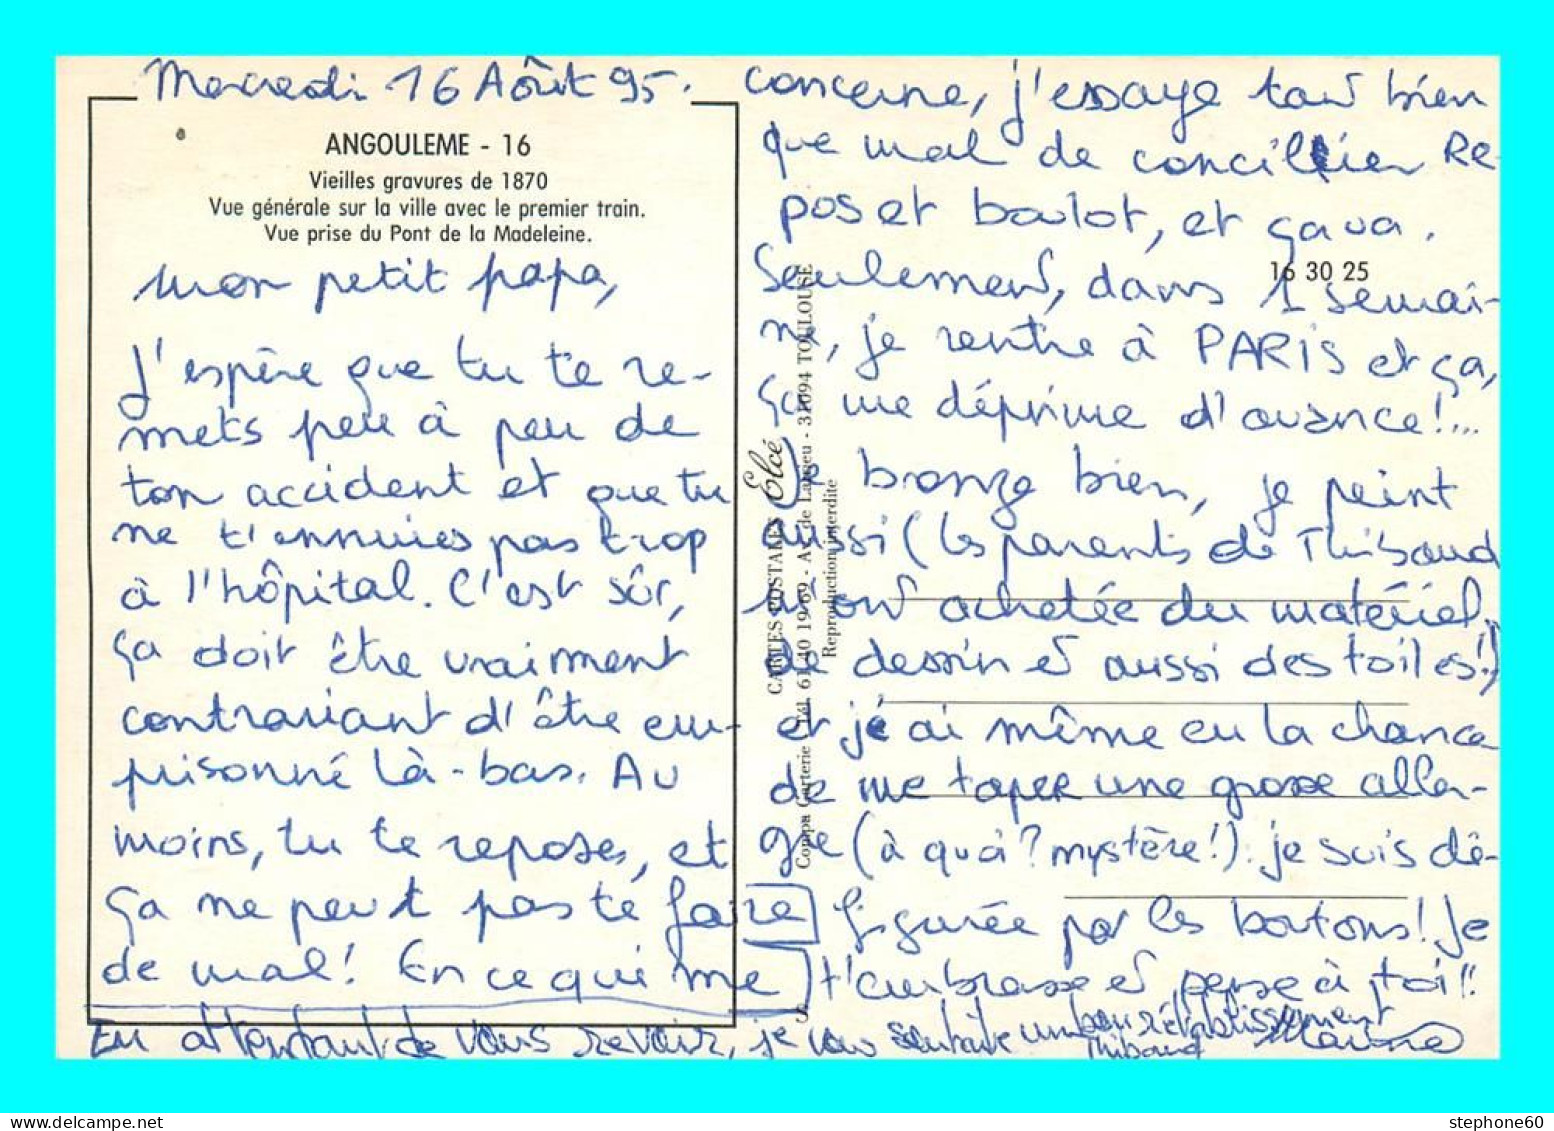 Mercredi 16 Août 95.
ANGOULEME - 16
Vieilles gravures de 1870
Vue générale sur la ville avec le premier train.
Vue prise du Pont de la Madeleine.
Mon petit papa,
J'espère que tu te re-
mets peu à peu de
ton accident et que tu
ne t'ennuies pas trop
à l'hôpital. C'est sûr,
ça doit être vraiment
contrariant d'être em-
prisonné là-bas. Au
moins, tu te reposes, et
ça ne peut pas te faire
de mal! En ce qui me
concerne, j'essaye tant bien
que mal de concilier Re-
pos et boulot, et ça va.
Seulement, dans 1 semai-
ne, je rentre à PARIS et ça,
ça me déprime d'avance!...
Je bronze bien, je peint
aussi (les parents de Thibaud
m'ont achetée du matériel
de dessin et aussi des toiles!)
et j'ai même eu la chance
de me taper une grosse aller-
gie (à quoi? mystère!). je suis dé-
figurée par les boutons! Je
t'embrasse et pense à toi!!
Marine
En attendant de vous revoir, je vous souhaite un bon rétablissement
Thibaud
16 30 25
CARTES POSTALES Elcé
31094 TOULOUSE
Reproduction interdite
stephone60